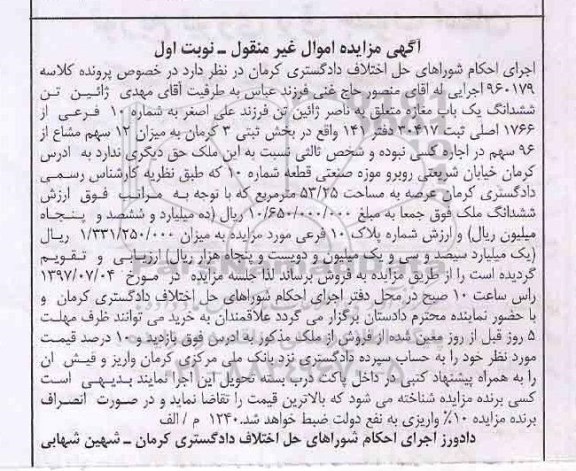 آگهی مزایده اموال غیر منقول ـ نوبت اول
اجرای احکام شوراهای حل اختلاف دادگستری کرمان در نظر دارد در خصوص پرونده کلاسه
۹۶۰۱۷۹ اجرایی له اقای منصور حاج غنی فرزند عباس به طرفیت آقای مهدی ژائین تن
ششدانگ یک باب مغازه متعلق به ناصر ژائین تن فرزند علی اصغر به شماره ۱۰ فرعی از
۱۷۶۶ اصلی ثبت ۳۰۴۱۷ دفتر ۱۴۱ واقع در بخش ثبتی ۳ کرمان به میزان ۱۲ سهم مشاع از
۹۶ سهم در اجاره کسی نبوده و شخص ثالثی نسبت به این ملک حق دیگری ندارد به ادرس
کرمان خیابان شریعتی روبرو موزه صنعتی قطعه شماره ۱۰ که طبق نظریه کارشناس رسمی
دادگستری کرمان عرصه به مساحت ۵۳/۲۵ مترمربع که با توجه به مراتب فوق ارزش
ششدانگ ملک فوق جمعا به مبلغ ۱۰/۶۵۰/۰۰۰/۰۰۰ ریال (ده میلیارد و ششصد و پنجاه
میلیون ریال) و ارزش شماره پلاک ۱۰ فرعی مورد مزایده به میزان ۱/۳۳۱/۲۵۰/۰۰۰ ریال
(یک میلیارد سیصد و سی و یک میلیون و دویست و پنجاه هزار ریال) ارزیابی و تقویم
گردیده است را از طریق مزایده به فروش برساند لذا جلسه مزایده در مورخ ۱۳۹۷/۰۷/۰۴
راس ساعت ۱۰ صبح در محل دفتر اجرای احکام شوراهای حل اختلاف دادگستری کرمان و
با حضور نماینده محترم دادستان برگزار می گردد علاقمندان به خرید می توانند ظرف مهلت
۵ روز قبل از روز معین شده از فروش از ملک مذکور به ادرس فوق بازدید و ۱۰ درصد قیمت
مورد نظر خود را به حساب سپرده دادگستری نزد بانک ملی مرکزی کرمان واریز و فیش ان
را به همراه پیشنهاد کتبی در داخل پاکت درب بسته تحویل این اجرا نمایند بدیهی است
کسی برنده مزایده شناخته می شود که بالاترین قیمت را تقاضا نماید و در صورت انصراف
برنده مزایده ۱۰٪ واریزی به نفع دولت ضبط خواهد شد. ۱۲۴۰ م / الف
دادورز اجرای احکام شوراهای حل اختلاف دادگستری کرمان ـ شهین شهابی